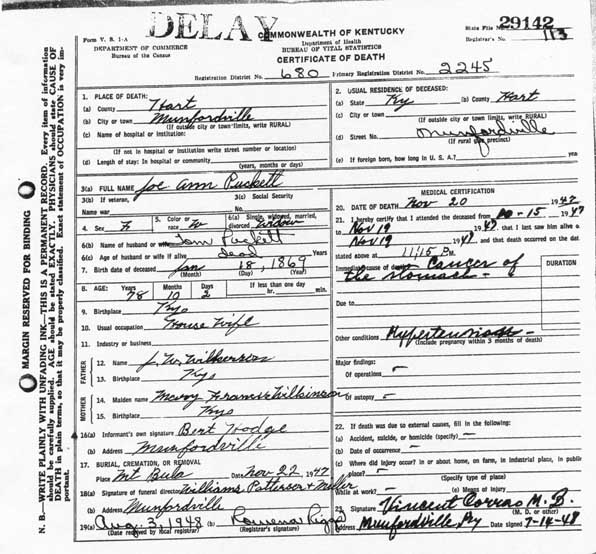 DELAY
COMMONWEALTH OF KENTUCKY
State File No. 29142
Form V. S. 1-A
Department of Health
Registrar's No. 113
DEPARTMENT OF COMMERCE
BUREAU OF VITAL STATISTICS
Bureau of the Census
CERTIFICATE OF DEATH
Registration District No. 680 Primary Registration District No. 2245
1. PLACE OF DEATH:
(a) County Hart
(b) City or town Munfordville
(If outside city or town limits, write RURAL)
(c) Name of hospital or institution:
(If not in hospital or institution write street number or location)
(d) Length of stay: In hospital or community
(years, months or days)
2. USUAL RESIDENCE OF DECEASED:
(a) State Ky (b) County Hart
(c) City or town
(If outside city or town limits, write RURAL)
(d) Street No. Munfordville
(If rural precinct)
(e) If foreign born, how long in U. S. A.? yea
3(a) FULL NAME Joe Ann Puckett
3(b) If veteran,
Name war
3(c) Social Security
No.
4. Sex F
5. Color or
race W
6(a) Single, widowed, married,
divorced Widow
6(b) Name of husband or wife Puckett
6(c) Age of husband or wife if alive dead Years
7. Birth date of deceased Jan 18, 1869
(Month) (Day) (Year)
8. AGE: Years Months Days If less than one day
78 10 2 hr. min.
9. Birthplace Ky
10. Usual occupation House Wife
11. Industry or business
FATHER
12. Name J. W. Wilkerson
13. Birthplace Ky
MOTHER
14. Maiden name Mary Wilkinson
15. Birthplace Ky
16(a) Informant's own signature Bert Hodge
(b) Address Munfordville
17. BURIAL, CREMATION, OR REMOVAL
Place Mt Bula Date Nov 22 1947
18(a) Signature of funeral director Williams, Patterson + Miller
(b) Address Munfordville
19(a) Aug. 3, 1948 (b) Rowena
(Date received by local registrar) (Registrar's signature)
MEDICAL CERTIFICATION
20. DATE OF DEATH Nov 20 1947
21. I hereby certify that I attended the deceased from 10-15, 1947
to Nov 19 1947, that I last saw him alive o
Nov 19 1947, and that death occurred on the dat
stated above at 11:15 P M.
DURATION
Immediate cause of death Cancer of
the stomach-
Due to
Other conditions Hypertension
(Include pregnancy within 3 months of death)
Major findings:
Of operations -
Of autopsy -
22. If death was due to external causes, fill in the following:
(a) Accident, suicide, or homicide (specify) -
(b) Date of occurrence -
(c) Where did injury occur? In or about home, on farm, in industrial place, in public
place?
(Specify type of place)
While at work? - (e) Means of injury
23. Signature Vincent Corrao M. D.
(M. D. or other)
Address Munfordville, Ky Date signed 7-14-48
MARGIN RESERVED FOR BINDING
N. B.—WRITE PLAINLY WITH UNFADING INK—THIS IS A PERMANENT RECORD. Every item of information
should be carefully supplied. AGE should be stated EXACTLY. PHYSICIANS should state CAUSE OF
DEATH in plain terms, so that it may be properly classified. Exact statement of OCCUPATION is very im-
portant.